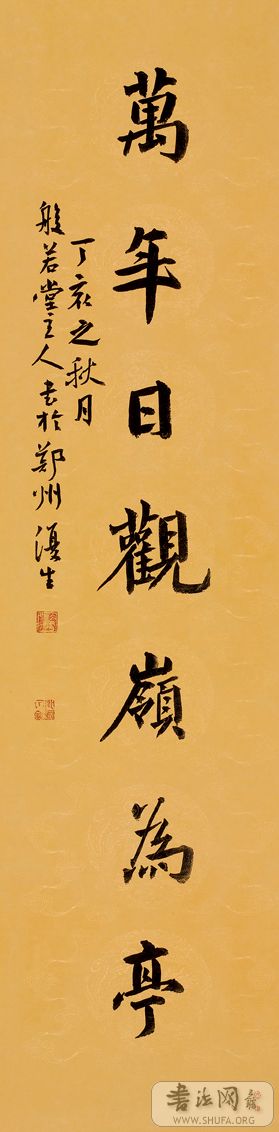 萬年日觀嶺為亭
丁亥之秋月
般若堂主人書於鄭州漢生
書法网
WWW.SHUFA.ORG